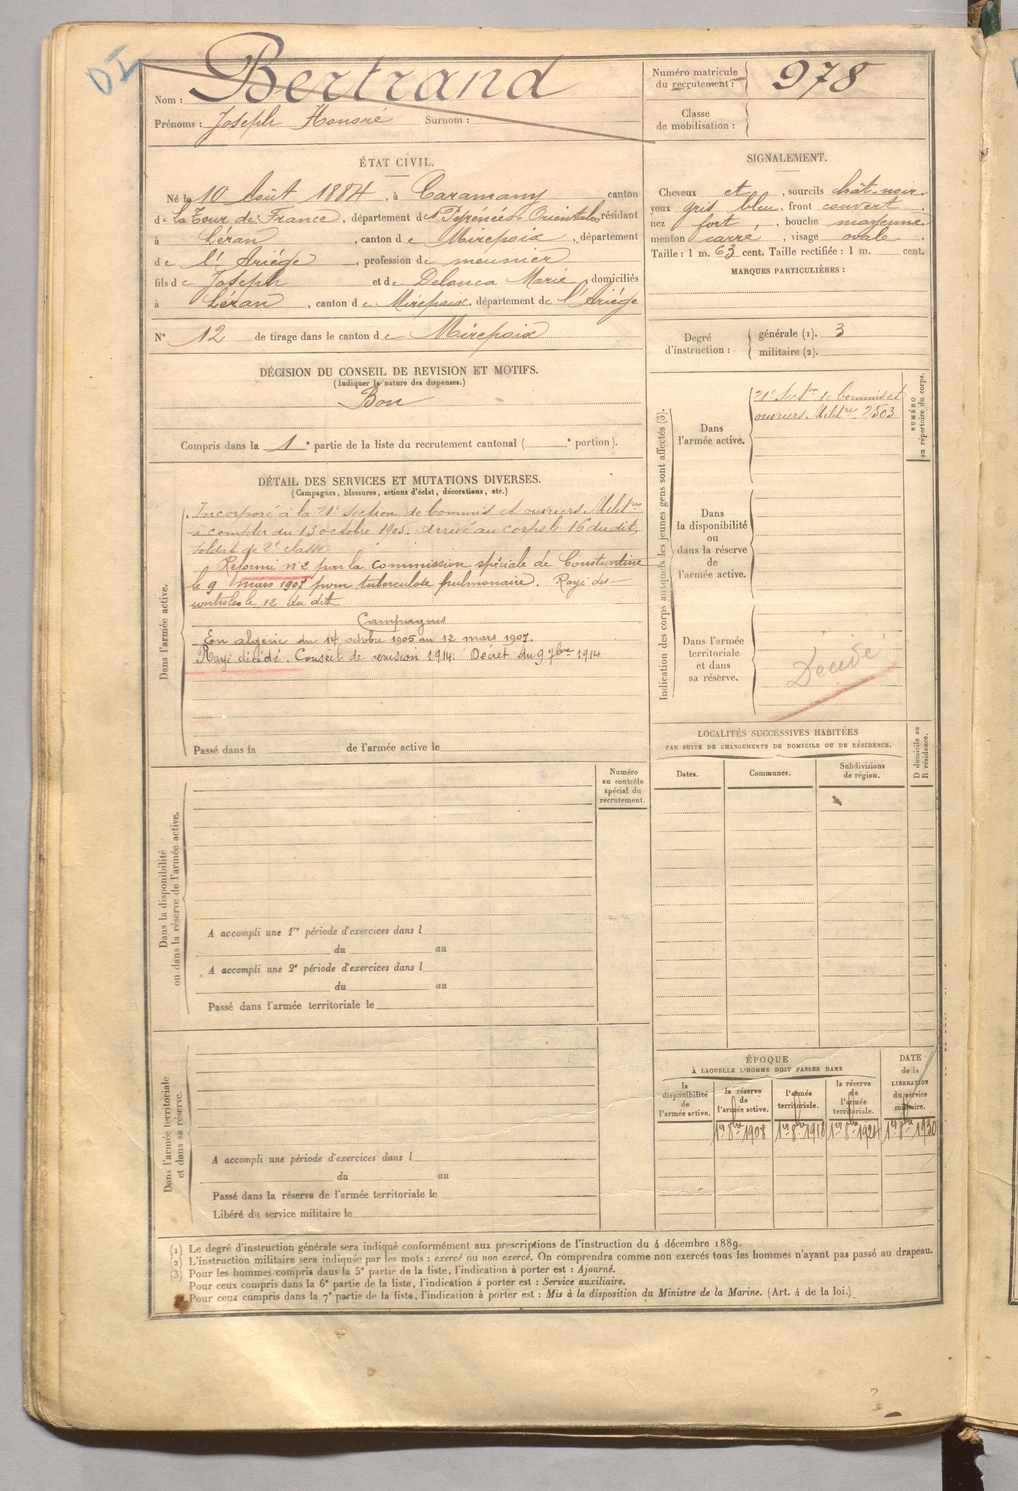 DI
Nom : Bertrand
Prénoms : Joseph Honoré Surnom :
Numéro matricule du recrutement : 978
Classe de mobilisation :
ÉTAT CIVIL.
Né le 10 Août 1884, à Caramany canton
de La Tour de France, département des Pyrénées-Orientales résidant
à Léran, canton de Mirepoix, département
de l'Ariége, profession de meunier
fils de Joseph et de Delonca Marie domiciliés
à Léran, canton de Mirepoix, département de l'Ariége
N° 12 de tirage dans le canton de Mirepoix
SIGNALEMENT.
Cheveux et, sourcils chât-noir.
yeux gris bleu, front couvert,
nez fort, bouche moyenne
menton carré, visage ovale.
Taille : 1 m. 63 cent. Taille rectifiée : 1 m. cent.
MARQUES PARTICULIÈRES :
Degré d'instruction : générale (1). 3
militaire (2).
DÉCISION DU CONSEIL DE REVISION ET MOTIFS.
(Indiquer la nature des dispenses.)
Bon
Compris dans la 1e partie de la liste du recrutement cantonal ( e portion).
DÉTAIL DES SERVICES ET MUTATIONS DIVERSES.
(Campagnes, blessures, actions d'éclat, décorations, etc.)
Dans l'armée active.
Incorporé à la 21e section de Commis et ouvriers Militres
à compter du 13 octobre 1905. Arrivé au corps le 16 du dit,
soldat de 2e classe
Réformé n°2 par la Commission spéciale de Constantine
le 9 mars 1907 pour tuberculose pulmonaire. Rayé des
contrôles le 12 du dit
Campagnes
En algérie du 14 octobre 1905 au 12 mars 1907.
Rayé décédé. Conseil de revision 1914. Décret du 9 7bre 1914
Passé dans la de l'armée active le
Indication des corps auxquels les jeunes gens sont affectés (3).
Dans l'armée active.
21e Secton de Commis et
ouvriers Militres 2503
NUMÉRO au répertoire du corps.
Dans la disponibilité ou dans la réserve de l'armée active.
Dans l'armée territoriale et dans sa réserve.
Décédé
LOCALITÉS SUCCESSIVES HABITÉES
PAR SUITE DE CHANGEMENTS DE DOMICILE OU DE RÉSIDENCE.
Dates.
Communes.
Subdivisions de région.
D domicile ou R résidence.
Dans la disponibilité ou dans la réserve de l'armée active.
Numéro au contrôle spécial du recrutement.
A accompli une 1re période d'exercices dans l
du au
A accompli une 2e période d'exercices dans l
du au
Passé dans l'armée territoriale le
Dans l'armée territoriale et dans sa réserve.
A accompli une période d'exercices dans l
du au
Passé dans la réserve de l'armée territoriale le
Libéré du service militaire le
ÉPOQUE
À LAQUELLE L'HOMME DOIT PASSER DANS
la disponibilité de l'armée active.
la réserve de l'armée active.
l'armée territoriale.
la réserve de l'armée territoriale.
DATE de la LIBÉRATION du service militaire.
1er 8bre 1908 1er 8bre 1918 1er 8bre 1924 1er 8bre 1930
(1) Le degré d'instruction générale sera indiqué conformément aux prescriptions de l'instruction du 4 décembre 1889.
(2) L'instruction militaire sera indiquée par les mots : exercé ou non exercé. On comprendra comme non exercés tous les hommes n'ayant pas passé au drapeau.
(3) Pour les hommes compris dans la 5e partie de la liste, l'indication à porter est : Ajourné.
Pour ceux compris dans la 6e partie de la liste, l'indication à porter est : Service auxiliaire.
Pour ceux compris dans la 7e partie de la liste, l'indication à porter est : Mis à la disposition du Ministre de la Marine. (Art. 4 de la loi.)